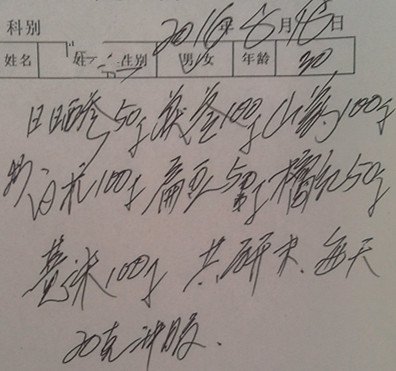 科别 2016年 月 日
姓名 性别 男/女 年龄 30
日晒参50g 茯苓100g 山药100g
炒白术100g 扁豆50g 橘红50g
薏米100g 共研末、每天
20克冲服.